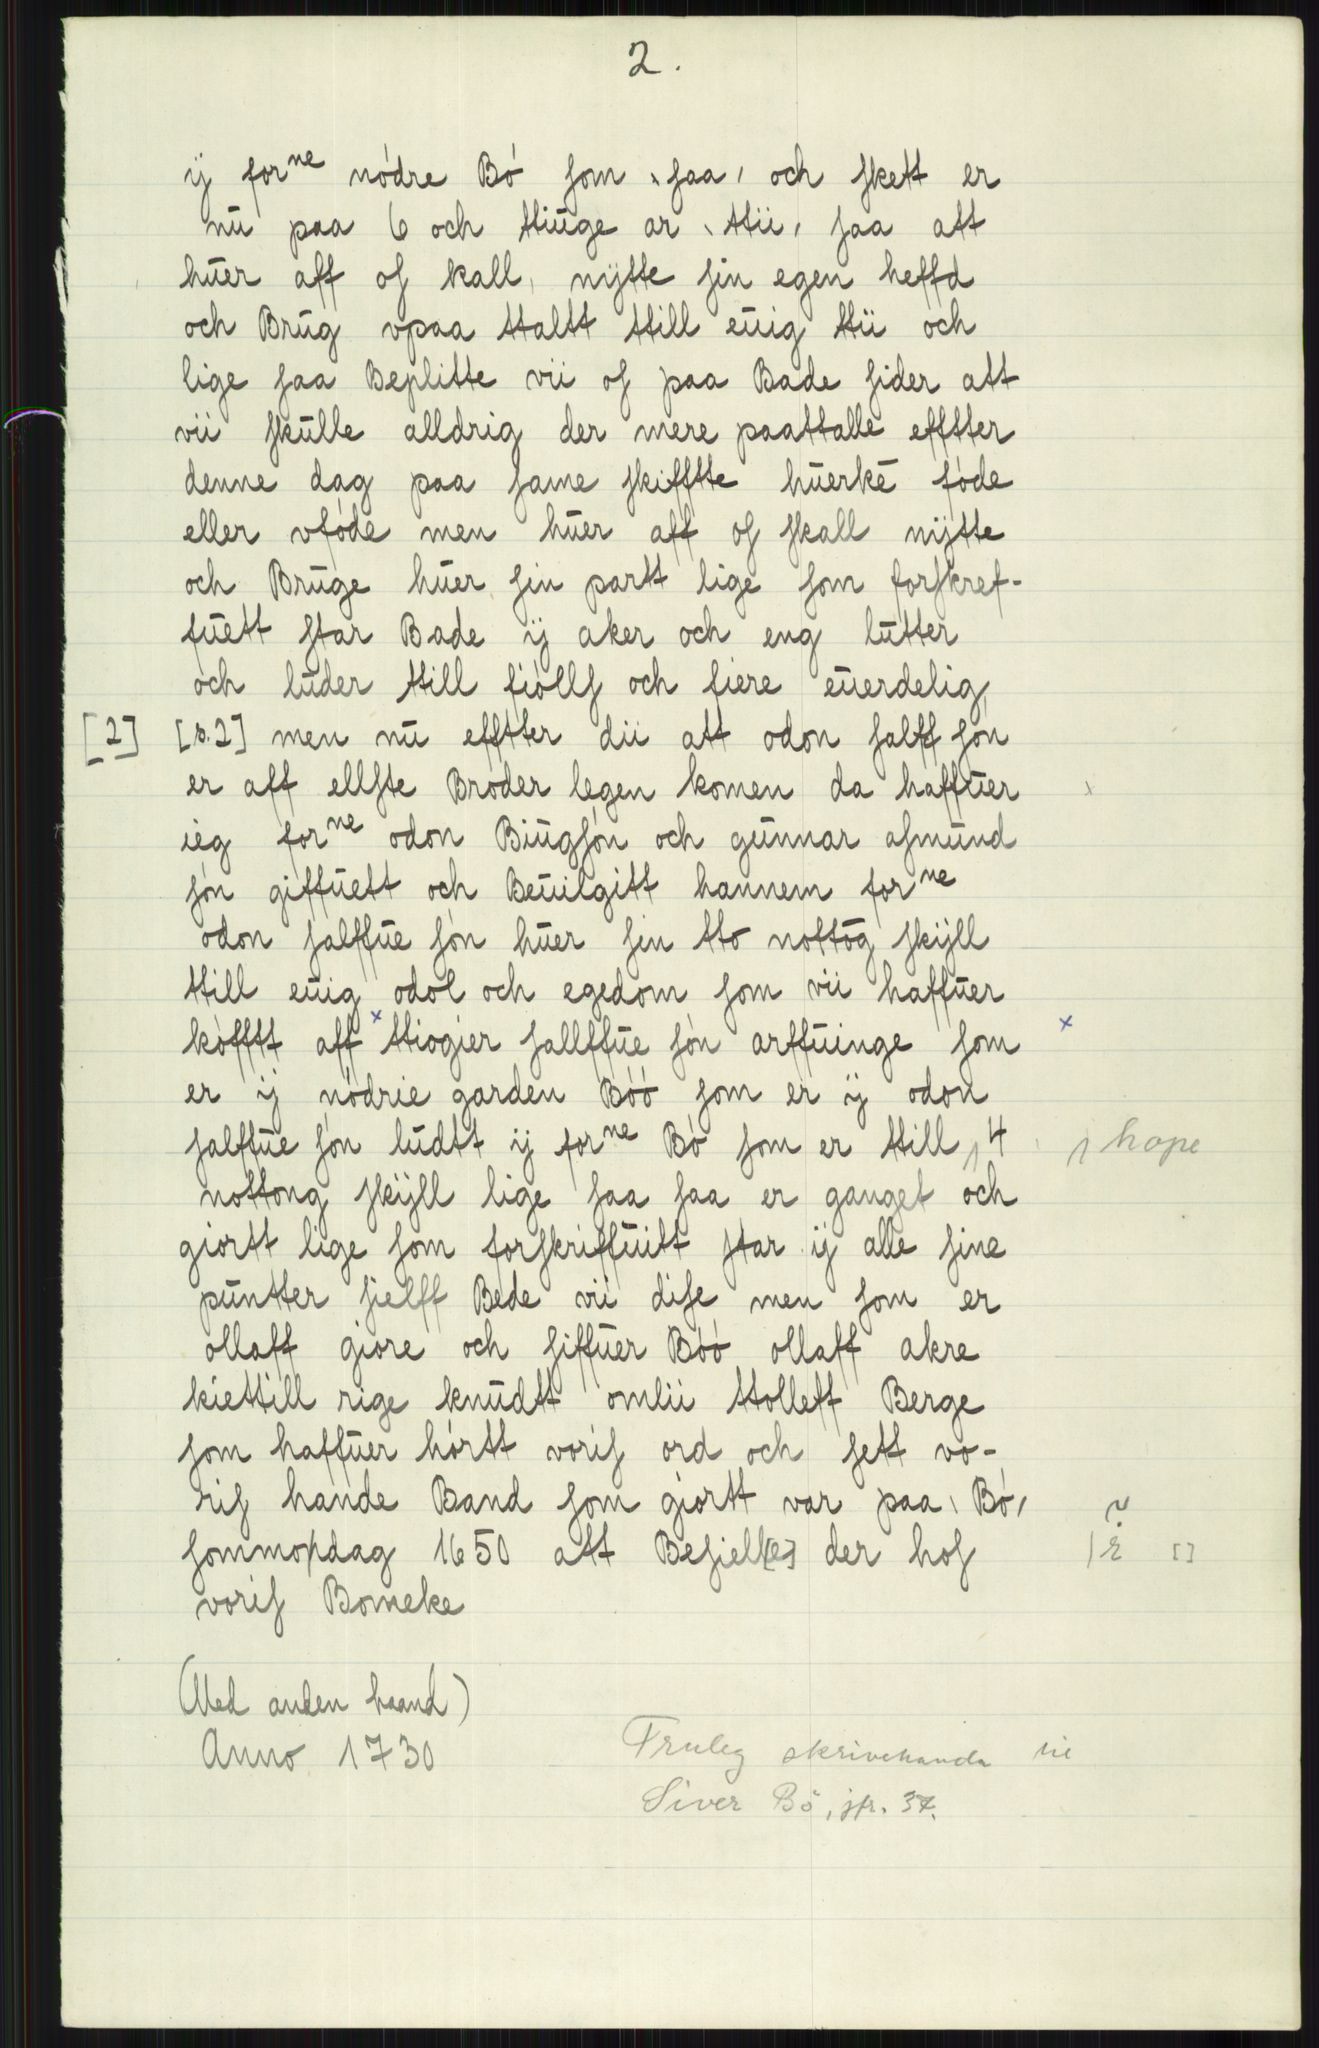 2.
ij for<sup>ne</sup> nódre Bó som ˎsaaˏ och skett er
nü paa 6 och ttiüge ar ˎttiiˏ saa att
hüer aff os kall, nÿtte sin egen heffd
och Brüg vpaa ttaltt ttill eüig ttii och
lige saa Beplitte vii os paa Bade sider att
vii skülle alldrig der mere paattalle effter
denne dag paa same skiffte hüerkē fóde
eller vfóde men hüer aff os skall nÿtte
och Brüge hüer sin partt lige som forskref-
füett star Bade ij aker och eng lütter
och lüder ttill fiólls och fiere eüerdelig,
[2] [s.2] men nü effter dii att odon salff són
er aff ellste Bróder legen komen da haffüer x
ieg for<sup>ne</sup> odon Biügsón och günnar asmünd
són giffüett och Beüilgitt hannem for<sup>ne</sup>
odon salffüe són hüer sin tto nottōg skÿll
ttill eüig odol och egedom som vii haffüer
kófftt aff x ttiogier sallffüe són arffüinge som x
er ij nódrie garden Bóó som er ij odon
salffüe són lüdtt ij for<sup>ne</sup> Bó som er ttill ꞁ 4 ꞁ hope
nottong skÿll lige saa saa er ganget och
giortt lige som forskriffüitt star ij alle sine
püntter sielff Bede vii dise men som er
ollaff giore och siffüer Bóó ollaff akre
kiettill rige knüdtt omlii ttolleff Berge
som haffüer hórtt voris ord och sett vo-
ris hande Band som giortt var paa ˎBóˏ
sommordag 1650 att Besiel[e] der hos | r ? []
voris Bomeke
(Med anden haand)
Anno 1730
Truleg skrivehanda til
Siver Bö, jfr. 37.